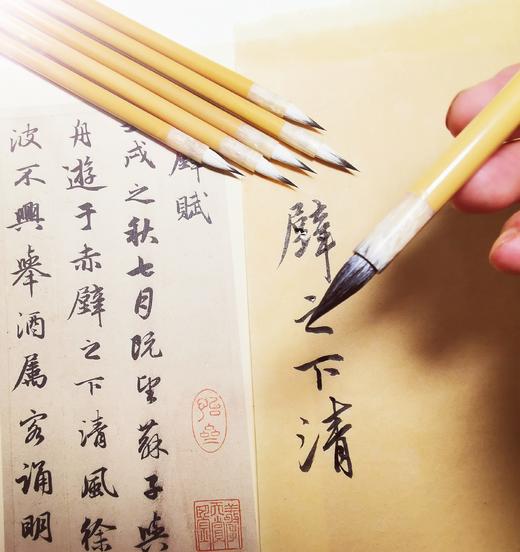 壁之下清
壁賦
戌之秋七月既望蘇子與
舟遊于赤壁之下清風徐
波不興舉酒属客誦明